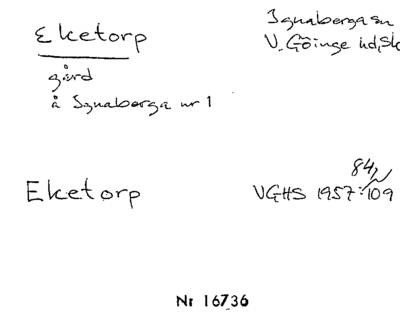 Eketorp
Ignaberga sn
V. Göinge hd, Sk
gård
å Ignaberga nr 1
Eketorp
84,
VGHS 1957: 109
Nr 16736